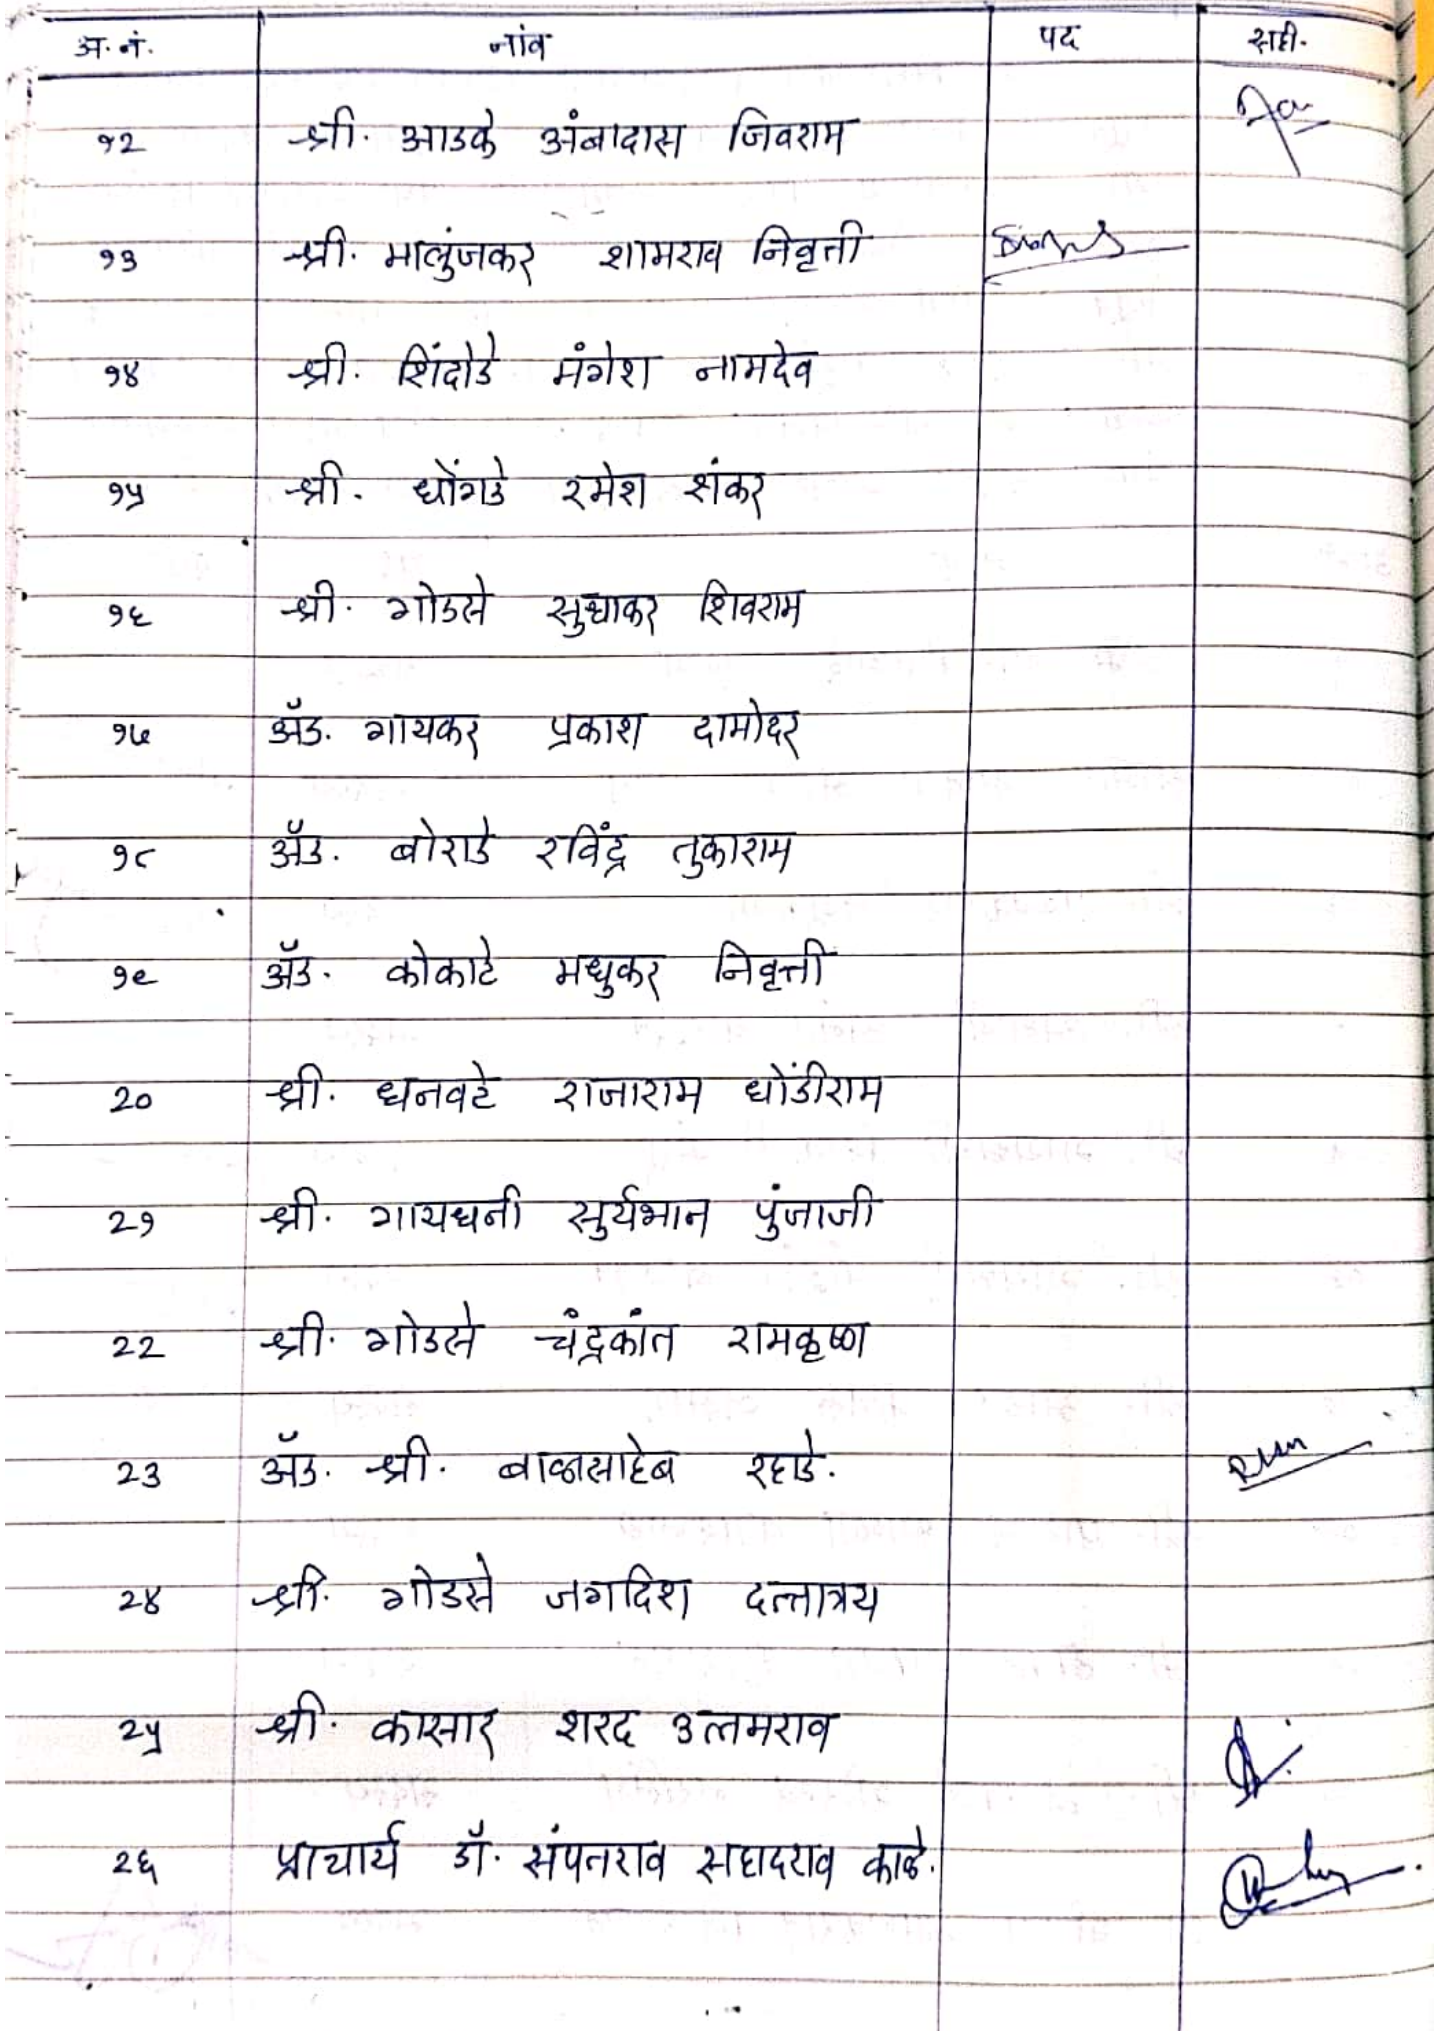 अ. नं. नांव पद सही.
१२ श्री. आडके अंबादास जिवराम
१३ श्री. मालुंजकर शामराव निवृत्ती
१४ श्री. शिंदोडे मंगेश नामदेव
१५ श्री. धोंगडे रमेश शंकर
१६ श्री. गोडसे सुधाकर शिवराम
१७ ॲड. गायकर प्रकाश दामोदर
१८ ॲड. बोराडे रविंद्र तुकाराम
१९ ॲड. कोकाटे मधुकर निवृत्ती
२० श्री. धनवटे राजाराम धोंडीराम
२१ श्री. गायधनी सुर्यभान पुंजाजी
२२ श्री. गोडसे चंद्रकांत रामकृष्ण
२३ ॲड. श्री. बाळासाहेब रहाडे.
२४ श्री. गोडसे जगदिश दत्तात्रय
२५ श्री. कासार शरद उत्तमराव
२६ प्राचार्य डॉ. संपतराव सहादराव काळे.